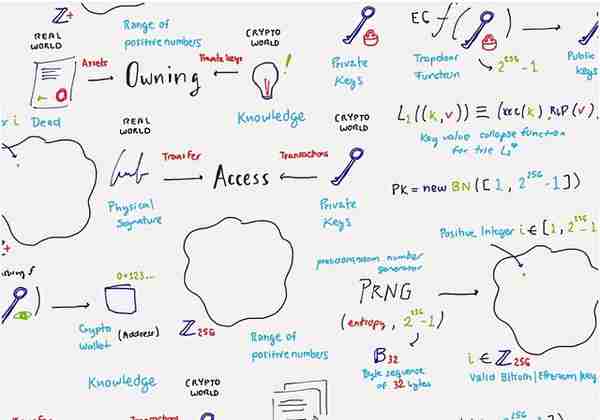 Z+
Range of
positive numbers
REAL
WORLD
Assets
Owning
Private keys
CRYPTO
WORLD
!
Dead
Knowledge
Private
Keys
EC f(
)
2^256-1
Trapdoor
Function
Public
Keys
REAL
WORLD
Transfer
Access
Transactions
CRYPTO
WORLD
Physical
Signature
Private
Keys
L1((k,v)) ≡ (KEC(k), RLP(v)
Key value collapse function
for trie
PK = new BN([1, 2^256-1])
Positive Integer i ∈ [1, 2^256-1
+
f
)
0x123...
Crypto
Wallet
(Address)
Z256
Range of
positive numbers
pseudorandom number
generator
PRNG
(entropy, 2^256-1)
B32
Byte sequence
of 32 bytes
i ∈ Z256
Valid Bitcoin|Ethereum key
Knowledge
CRYPTO
WORLD
Transfer
Transactions